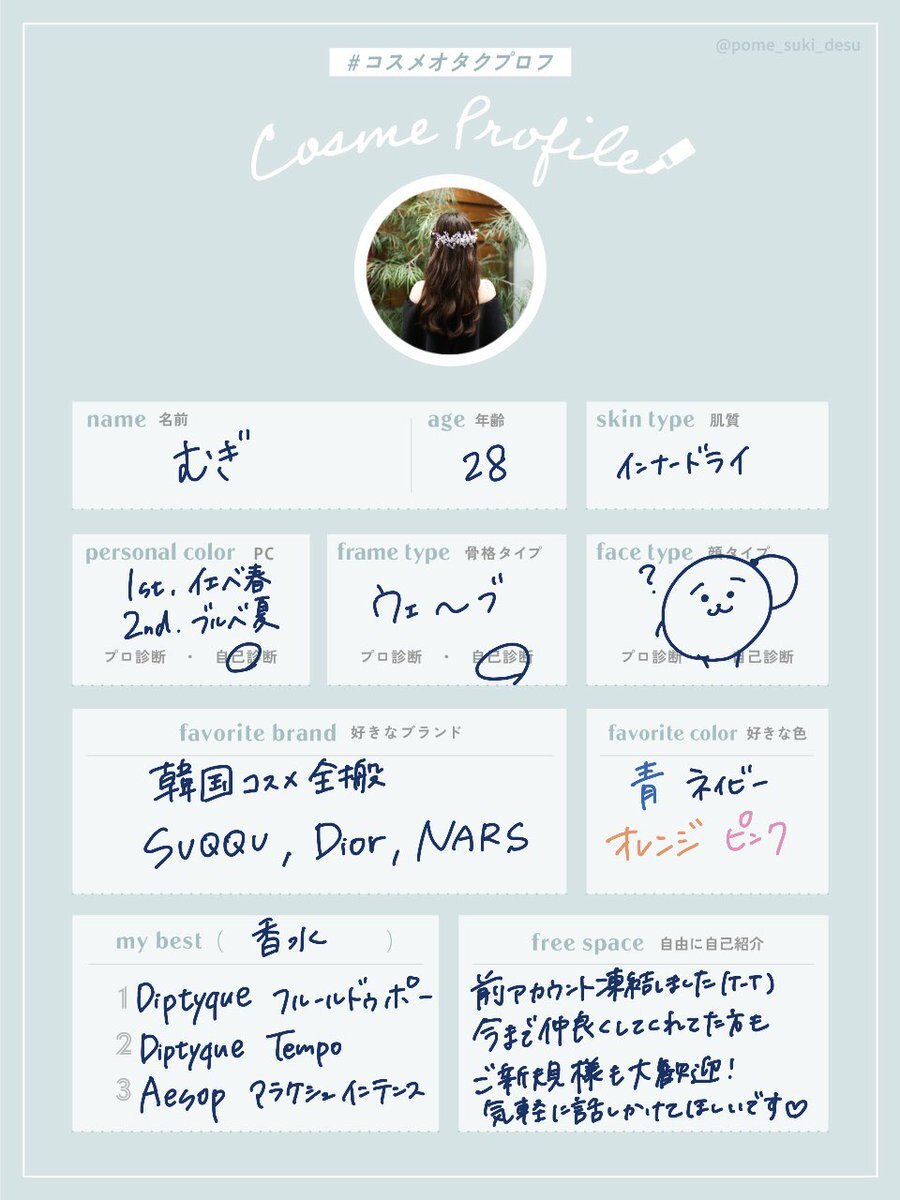 @pome_suki_desu
#コスメオタクプロフ
Cosme Profile
name 名前
むぎ
age 年齢
28
skin type 肌質
インナードライ
personal color PC
1st. イエベ春
2nd. ブルベ夏
プロ診断 ・ 自己診断
frame type 骨格タイプ
ウェ〜ブ
プロ診断 ・ 自己診断
face type 顔タイプ
?
プロ診断 ・ 自己診断
favorite brand 好きなブランド
韓国コスメ全搬
SUQQU, Dior, NARS
favorite color 好きな色
青 ネイビー
オレンジ ピンク
my best ( 香水 )
1 Diptyque フルールドゥポー
2 Diptyque Tempo
3 Aesop マラケシュインテンス
free space 自由に自己紹介
前アカウント凍結しました(T-T)
今まで仲良くしてくれてた方も
ご新規様も大歓迎!
気軽に話しかけてほしいです♡